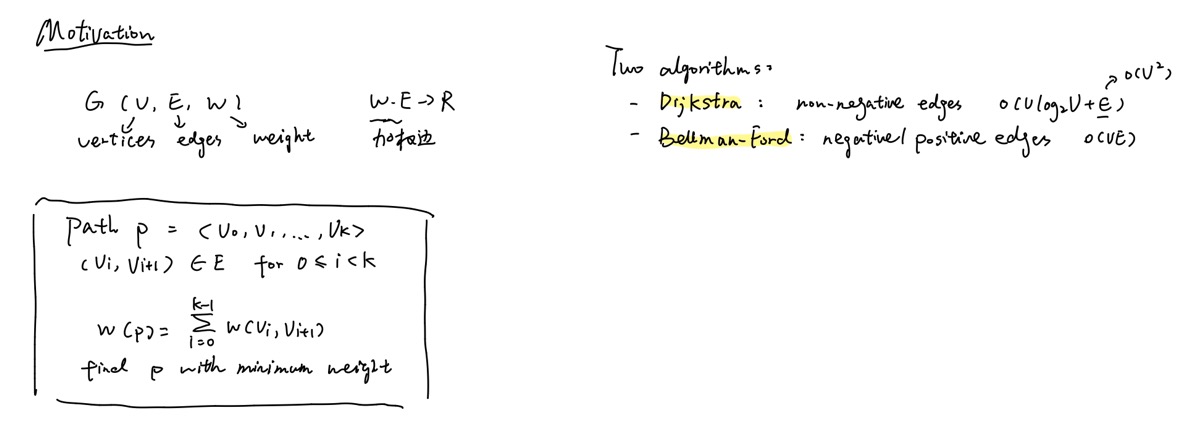 Motivation
G (V, E, W)
vertices edges weight
W: E → R
加权边
Path p = <V0, V1, ..., Vk>
(Vi, Vi+1) ∈ E for 0 ≤ i < k
w(p) = Σ_{i=0}^{k-1} w(Vi, Vi+1)
find p with minimum weight
Two algorithms:
O(V²)
- Dijkstra: non-negative edges O(V log₂V + E)
- Bellman-Ford: negative/positive edges O(VE)